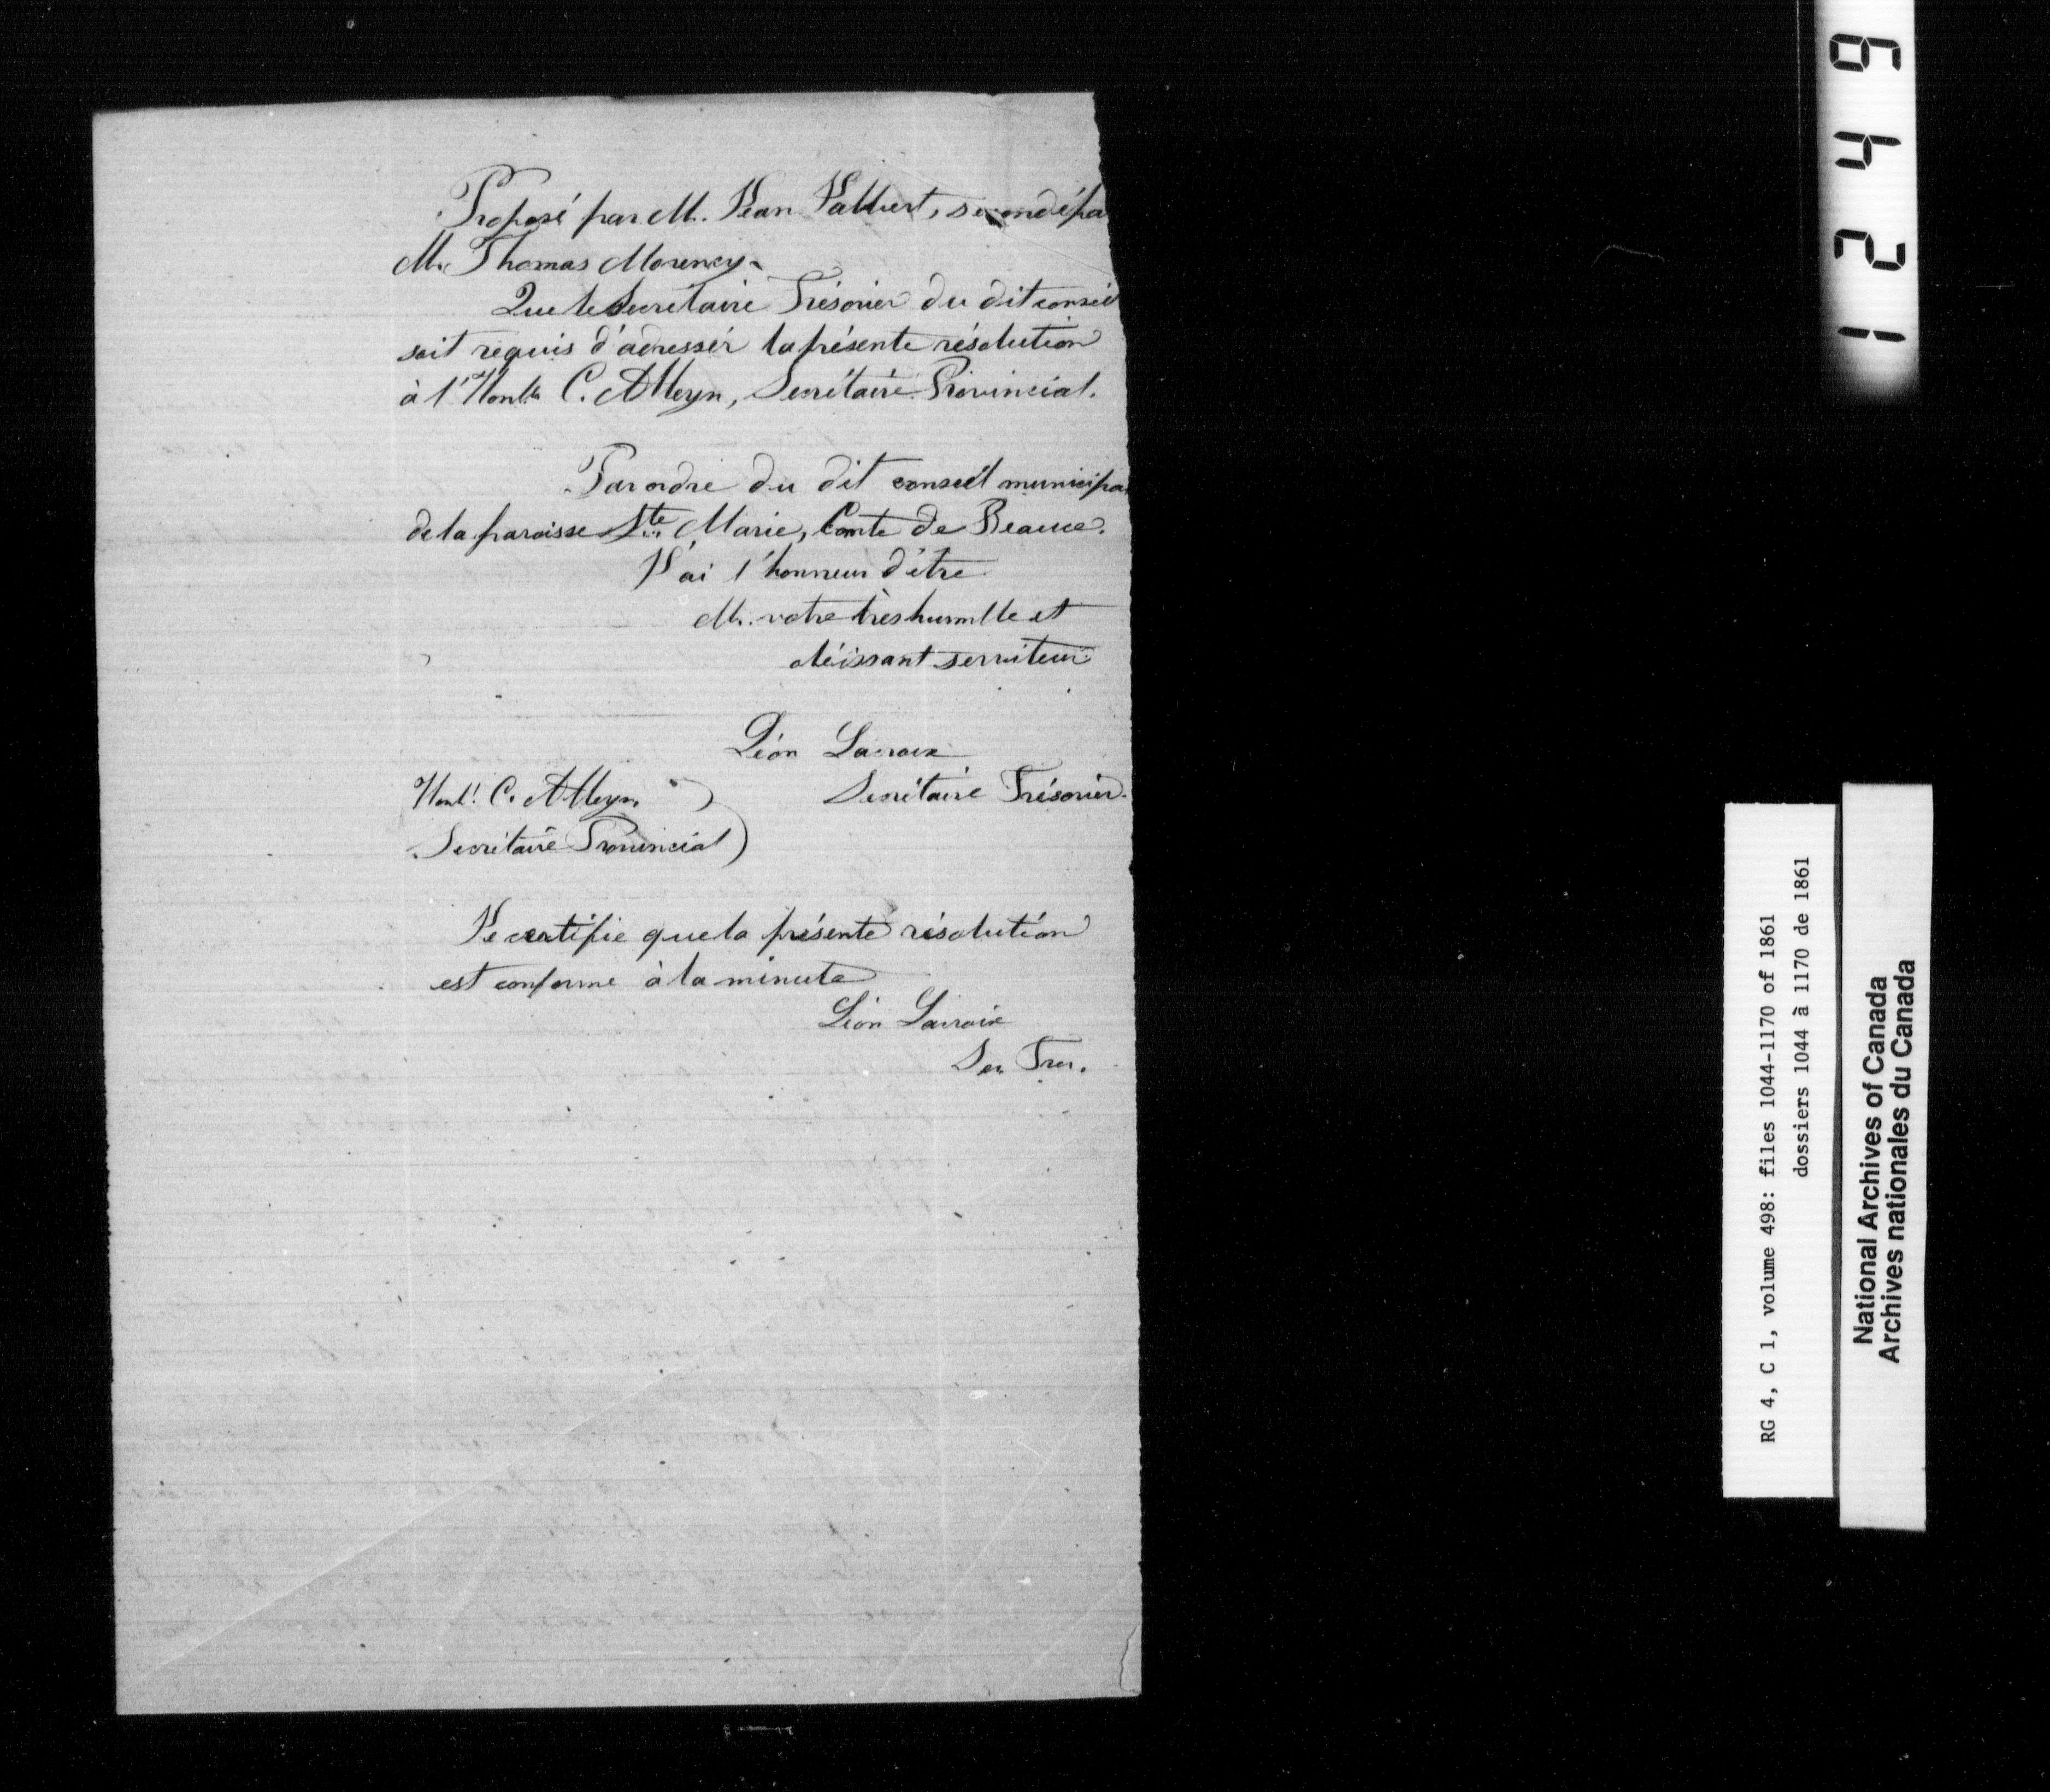 Proposé par M. Jean Jalbert, secondé pa
M. Thomas Morency.
Que le Secrétaire Trésorier du dit conseil
soit requis d'adresser la présente résolution
à l'Honble C. Alleyn, Secrétaire Provincial.
Par ordre du dit conseil municipa
de la paroisse Ste Marie, Comte de Beauce.
J'ai l'honneur d'être
M. votre très humble et
obéissant serviteur
Léon Lacroix
Secrétaire Trésorier.
Honl. C. Alleyn
Secrétaire Provincial
Je certifie que la présente résolution
est conforme à la minute
Léon Lacroix
Sec Tres.
1246
RG 4, C 1, volume 498: files 1044-1170 of 1861
dossiers 1044 à 1170 de 1861
National Archives of Canada
Archives nationales du Canada